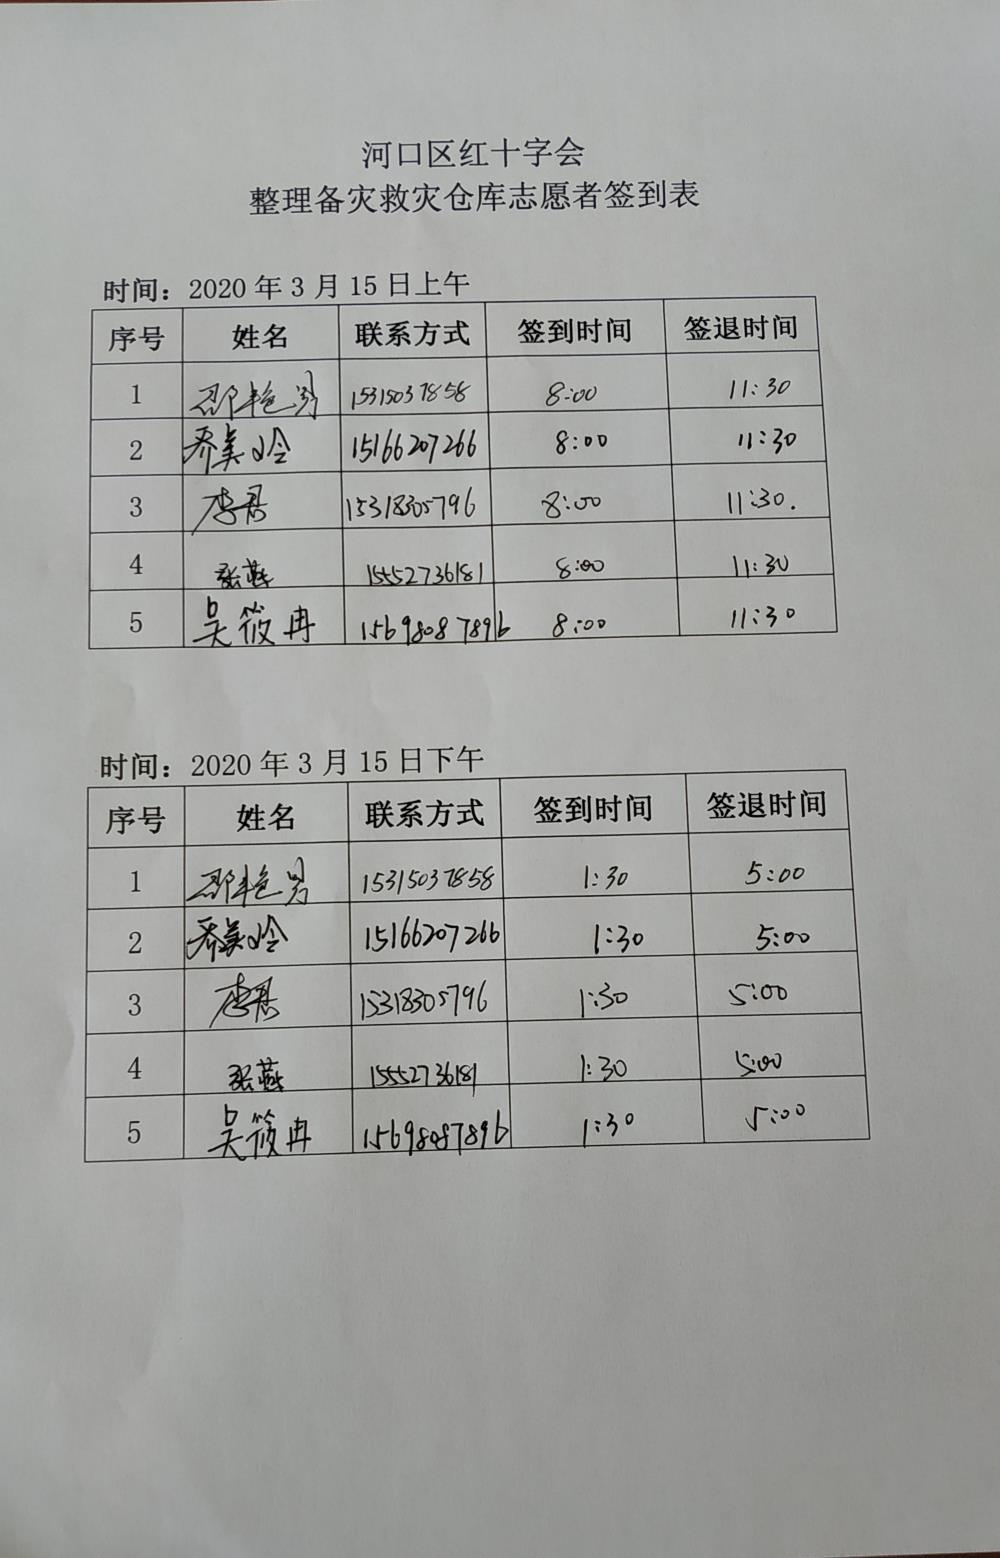 河口区红十字会
整理备灾救灾仓库志愿者签到表
时间：2020 年 3 月 15 日上午
序号 姓名 联系方式 签到时间 签退时间
1 邵艳男 15315037858 8:00 11:30
2 乔美玲 15166207266 8:00 11:30
3 李君 15318305796 8:00 11:30.
4 张燕 15552736181 8:00 11:30
5 吴筱冉 15698087896 8:00 11:30
时间：2020 年 3 月 15 日下午
序号 姓名 联系方式 签到时间 签退时间
1 邵艳男 15315037858 1:30 5:00
2 乔美玲 15166207266 1:30 5:00
3 李君 15318305796 1:30 5:00
4 张燕 15552736181 1:30 5:00
5 吴筱冉 15698087896 1:30 5:00